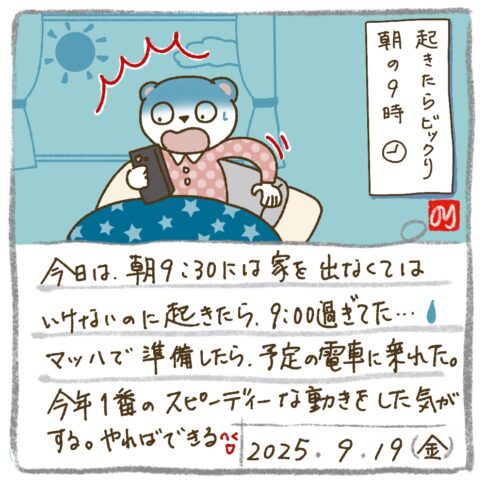 起きたらビックリ
朝の9時
今日は、朝9:30には家を出なくては
いけないのに起きたら、9:00過ぎてた…
マッハで準備したら、予定の電車に乗れた。
今年1番のスピーディーな動きをした気が
する。やればできる
2025.9.19(金)